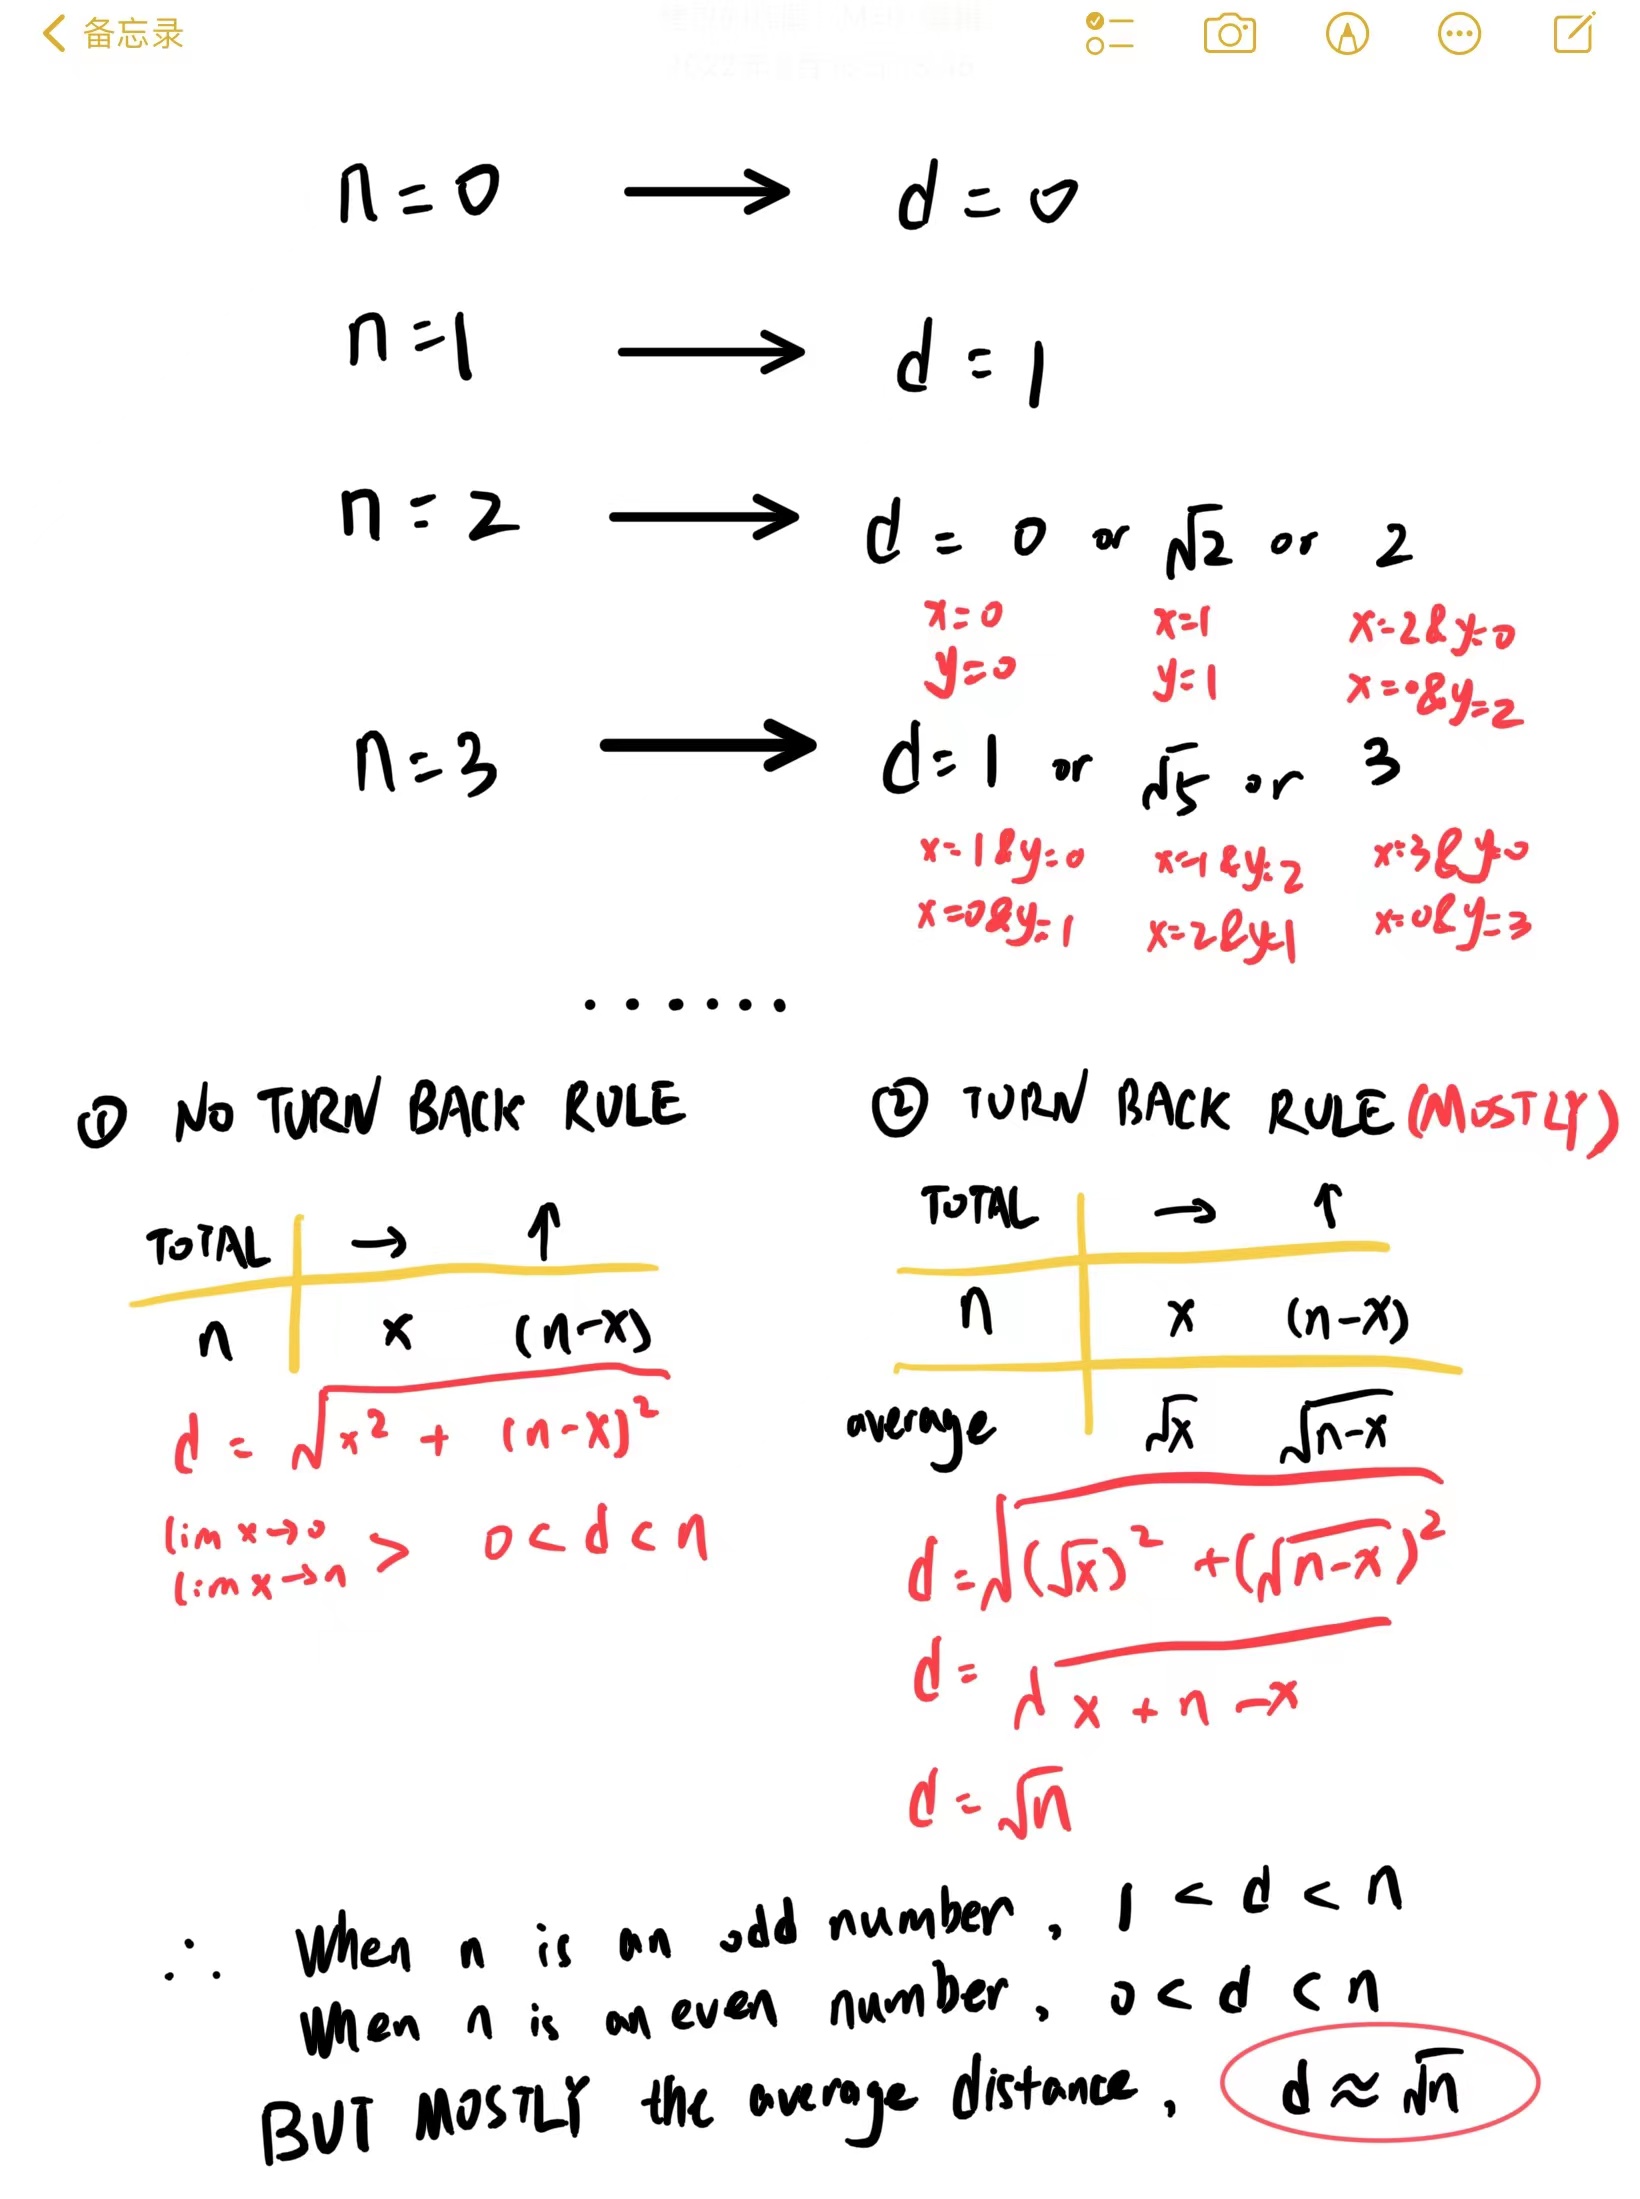 备忘录
n=0 → d=0
n=1 → d=1
n=2 → d=0 or √2 or 2
x=0 x=1 x=2&y=0
y=0 y=1 x=0&y=2
n=3 → d=1 or √5 or 3
x=1&y=0 x=1&y=2 x=3&y=0
x=0&y=1 x=2&y=1 x=0&y=3
......
① NO TURN BACK RULE
TOTAL → ↑
n x (n-x)
d = √(x² + (n-x)²)
lim x→0
lim x→n > 0<d<n
② TURN BACK RULE (MOSTLY)
TOTAL → ↑
n x (n-x)
average √x √(n-x)
d=√((√x)² +(√(n-x))²)
d= √(x+n-x)
d=√n
∴ When n is an odd number, 1<d<n
When n is an even number, 0<d<n
BUT MOSTLY the average distance, d≈√n